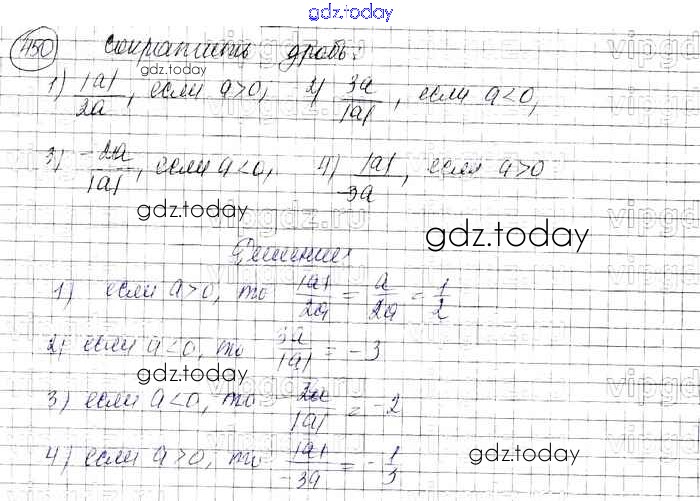 gdz.today
450 Сократить дробь:
gdz.today
1) |a|/2a, если a>0, 2) 3a/|a|, если a<0,
3) -2a/|a|, если a<0, 4) |a|/-3a, если a>0
gdz.today
gdz.today
Решение
1) если a>0, то |a|/2a = a/2a = 1/2
2) если a<0, то 3a/|a| = -3
gdz.today
3) если a<0, то -2a/|a| = -2
4) если a>0, то |a|/-3a = -1/3
gdz.today